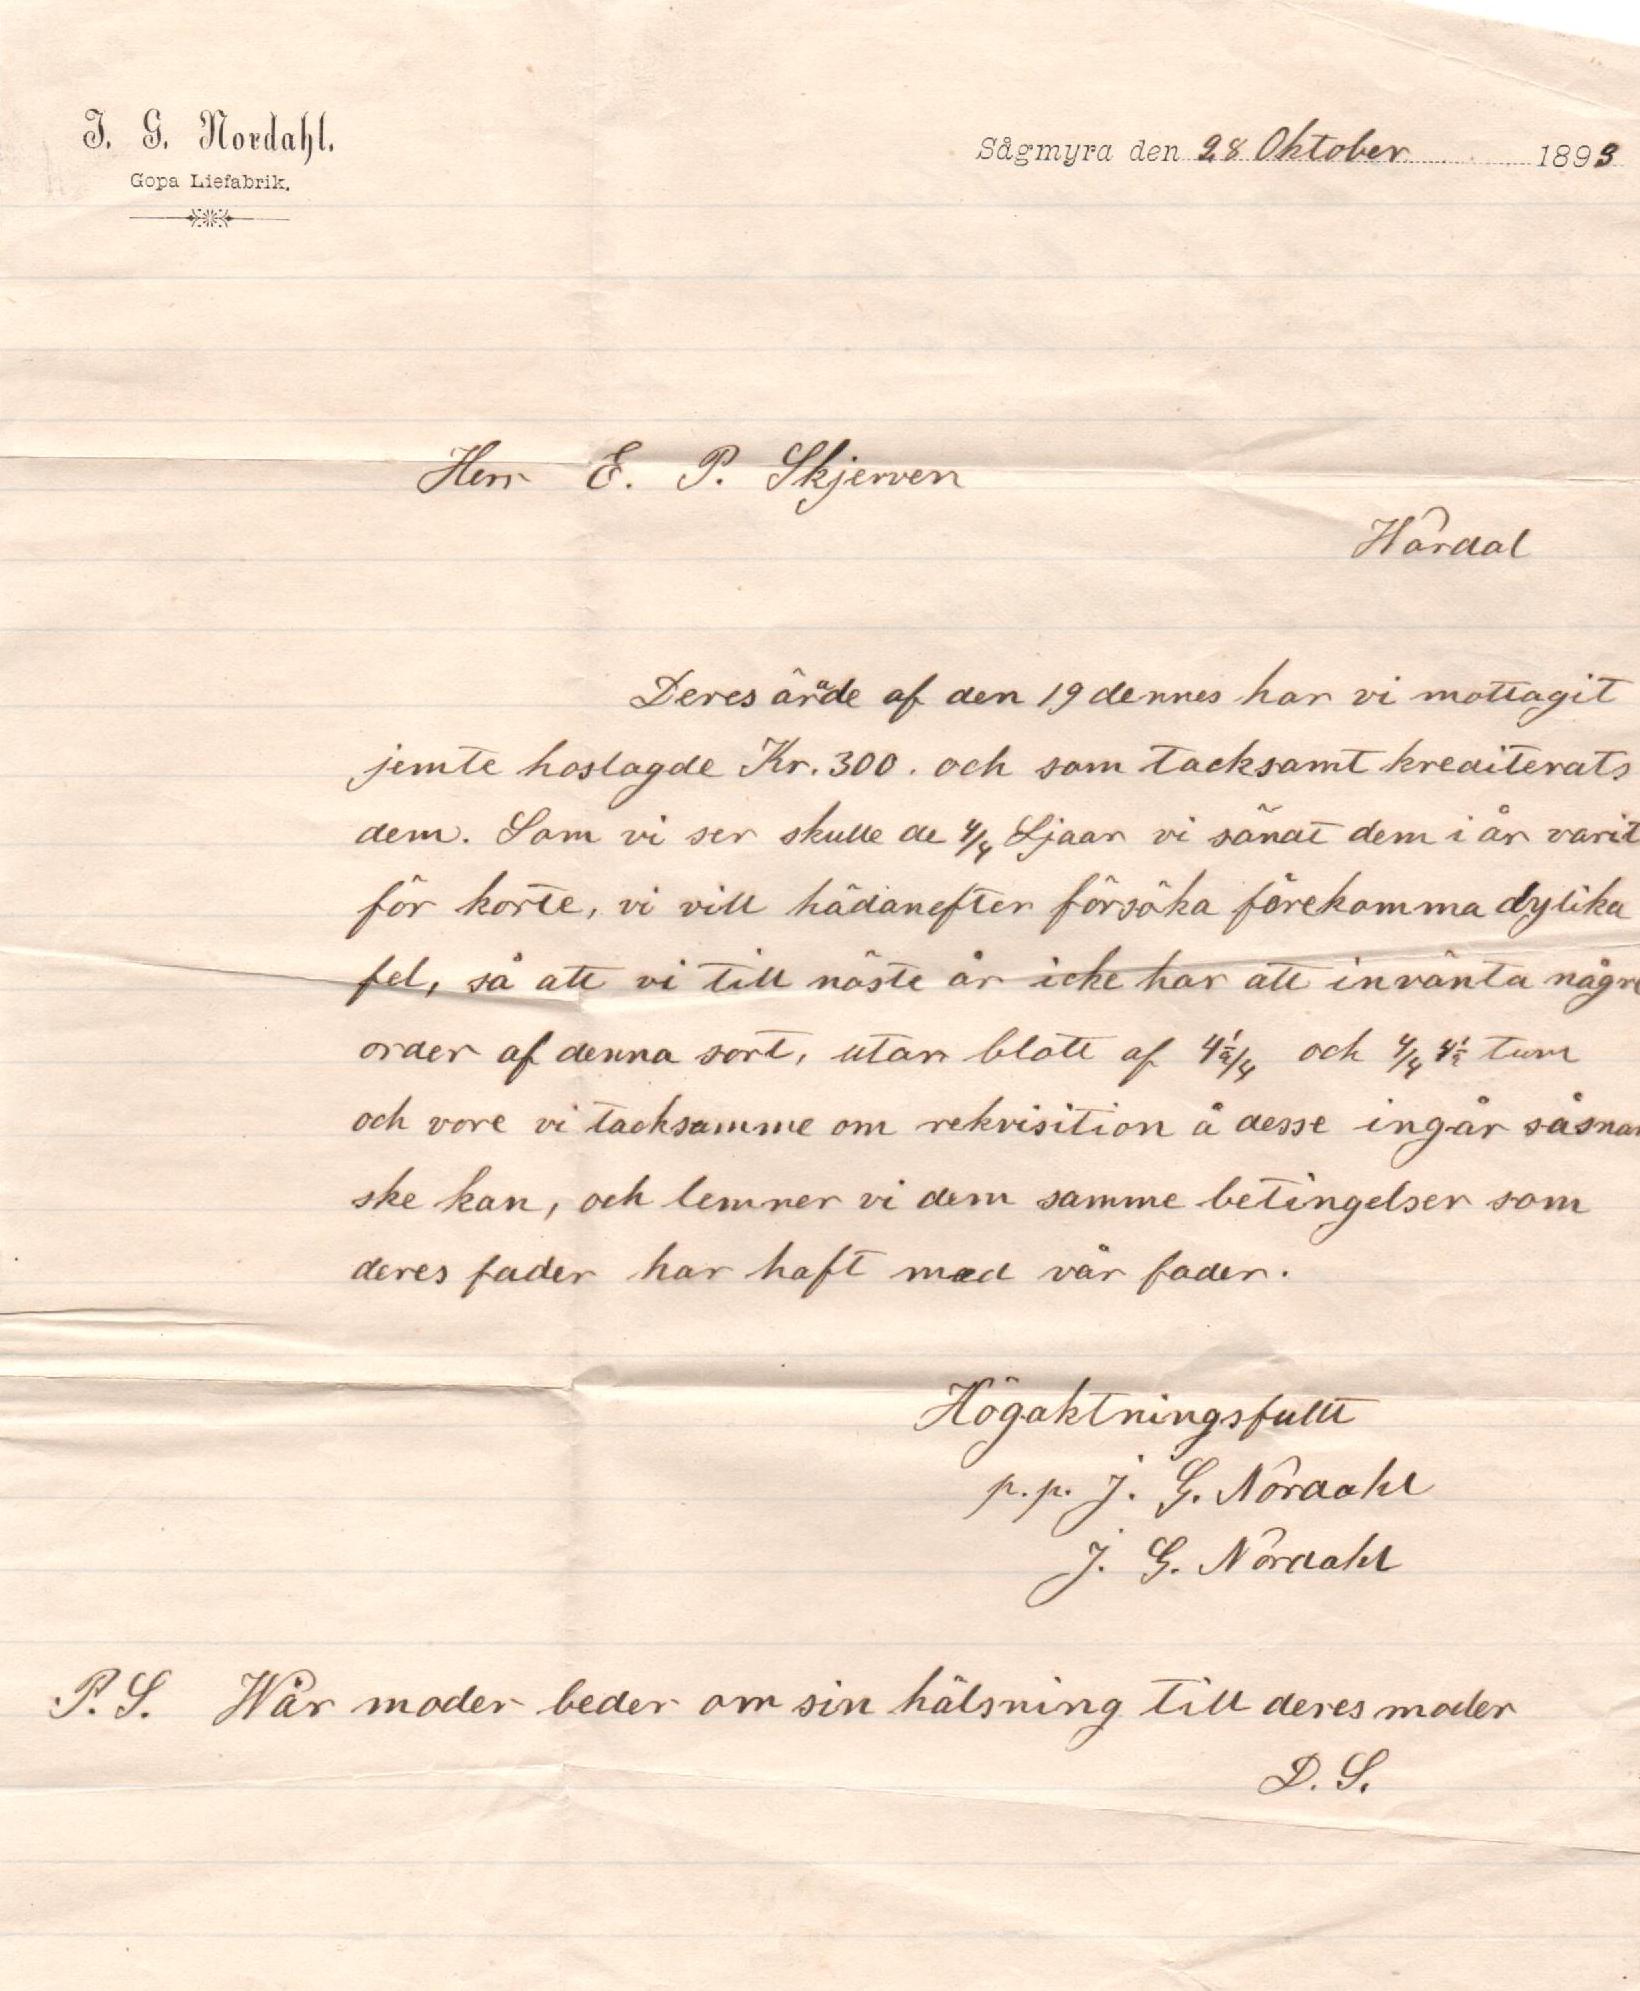 J. G. Nordahl.
Gopa Liefabrik.
Sågmyra den 28 Oktober 1893
Herr E. P. Skjerven
Hårdal
Deres ärade af den 19 dennes har vi mottagit
jemte hoslagde Kr. 300. och som tacksamt krediterats
dem. Som vi ser skulle de 4/4 Ljaar vi sändt dem i år varit
för korte, vi vill hädanefter försöka förekomma dylika
fel, så att vi till näste år icke har att invänta någre
order af denna sort, utan blott af 4½/4 och 4/4 4½ tum
och vore vi tacksamme om rekvisition å desse ingår såsnar
ske kan, och lemner vi dem samme betingelser som
deres fader har haft med vår fader.
Högaktningsfullt
p.p. J. G. Nordahl
J. G. Nordahl
P. S. Wår moder beder om sin hälsning till deres moder
D. S.